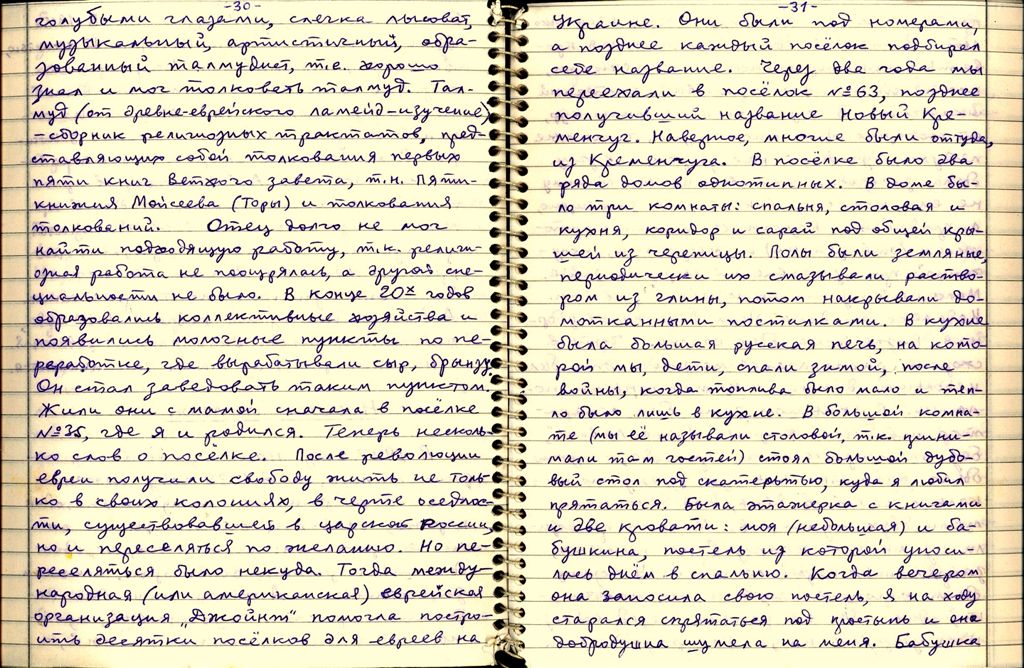 -30-
голубыми глазами, слегка лысоват,
музыкальный, артистичный, обра-
зованный талмудист, т.е. хорошо
знал и мог толковать талмуд. Тал-
муд (от древне-еврейского ламейд-изучение)
-сборник религиозных трактатов, пред-
ставляющих собой толкования первых
пяти книг Ветхого завета, т.н. Пяти-
книжия Моисеева (Торы) и толкования
толкований. Отец долго не мог
найти подходящую работу, т.к. религи-
озная работа не поощрялась, а другой спе-
циальности не было. В конце 20х годов
образовались коллективные хозяйства и
появились молочные пункты по пе-
реработке, где вырабатывали сыр, брынзу.
Он стал заведовать таким пунктом.
Жили они с мамой сначала в посёлке
№35, где я и родился. Теперь несколь-
ко слов о посёлке. После революции
евреи получили свободу жить не толь-
ко в своих колониях, в черте оседлос-
ти, существовавшей в царской России,
но и переселяться по желанию. Но пе-
реселяться было некуда. Тогда между-
народная (или американская) еврейская
организация „Джойнт" помогла постро-
ить десятки посёлков для евреев на
-31-
Украине. Они были под номерами,
а позднее каждый посёлок подбирал
себе название. Через два года мы
переехали в посёлок №63, позднее
получивший название Новый Кре-
менчуг. Наверное, многие были оттуда,
из Кременчуга. В посёлке было два
ряда домов однотипных. В доме бы-
ло три комнаты: спальня, столовая и
кухня, коридор и сарай под общей кры-
шей из черепицы. Полы были земляные,
периодически их смазывали раство-
ром из глины, потом накрывали до-
мотканными постилками. В кухне
была большая русская печь, на кото-
рой мы, дети, спали зимой, после
войны, когда топлива было мало и теп-
ло было лишь в кухне. В большой комна-
те (мы её называли столовой, т.к. прини-
мали там гостей) стоял большой дубо-
вый стол под скатертью, куда я любил
прятаться. Была этажерка с книгами
и две кровати: моя (небольшая) и ба-
бушкина, постель из которой уноси-
лась днём в спальню. Когда вечером
она заносила свою постель, я на ходу
старался спрятаться под простынь и она
добродушна шумела на меня. Бабушка